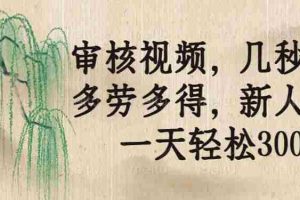 审核视频，几秒
多劳多得，新人
一天轻松300